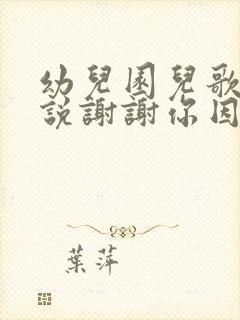 幼兒園兒歌
說謝謝你因
葉萍